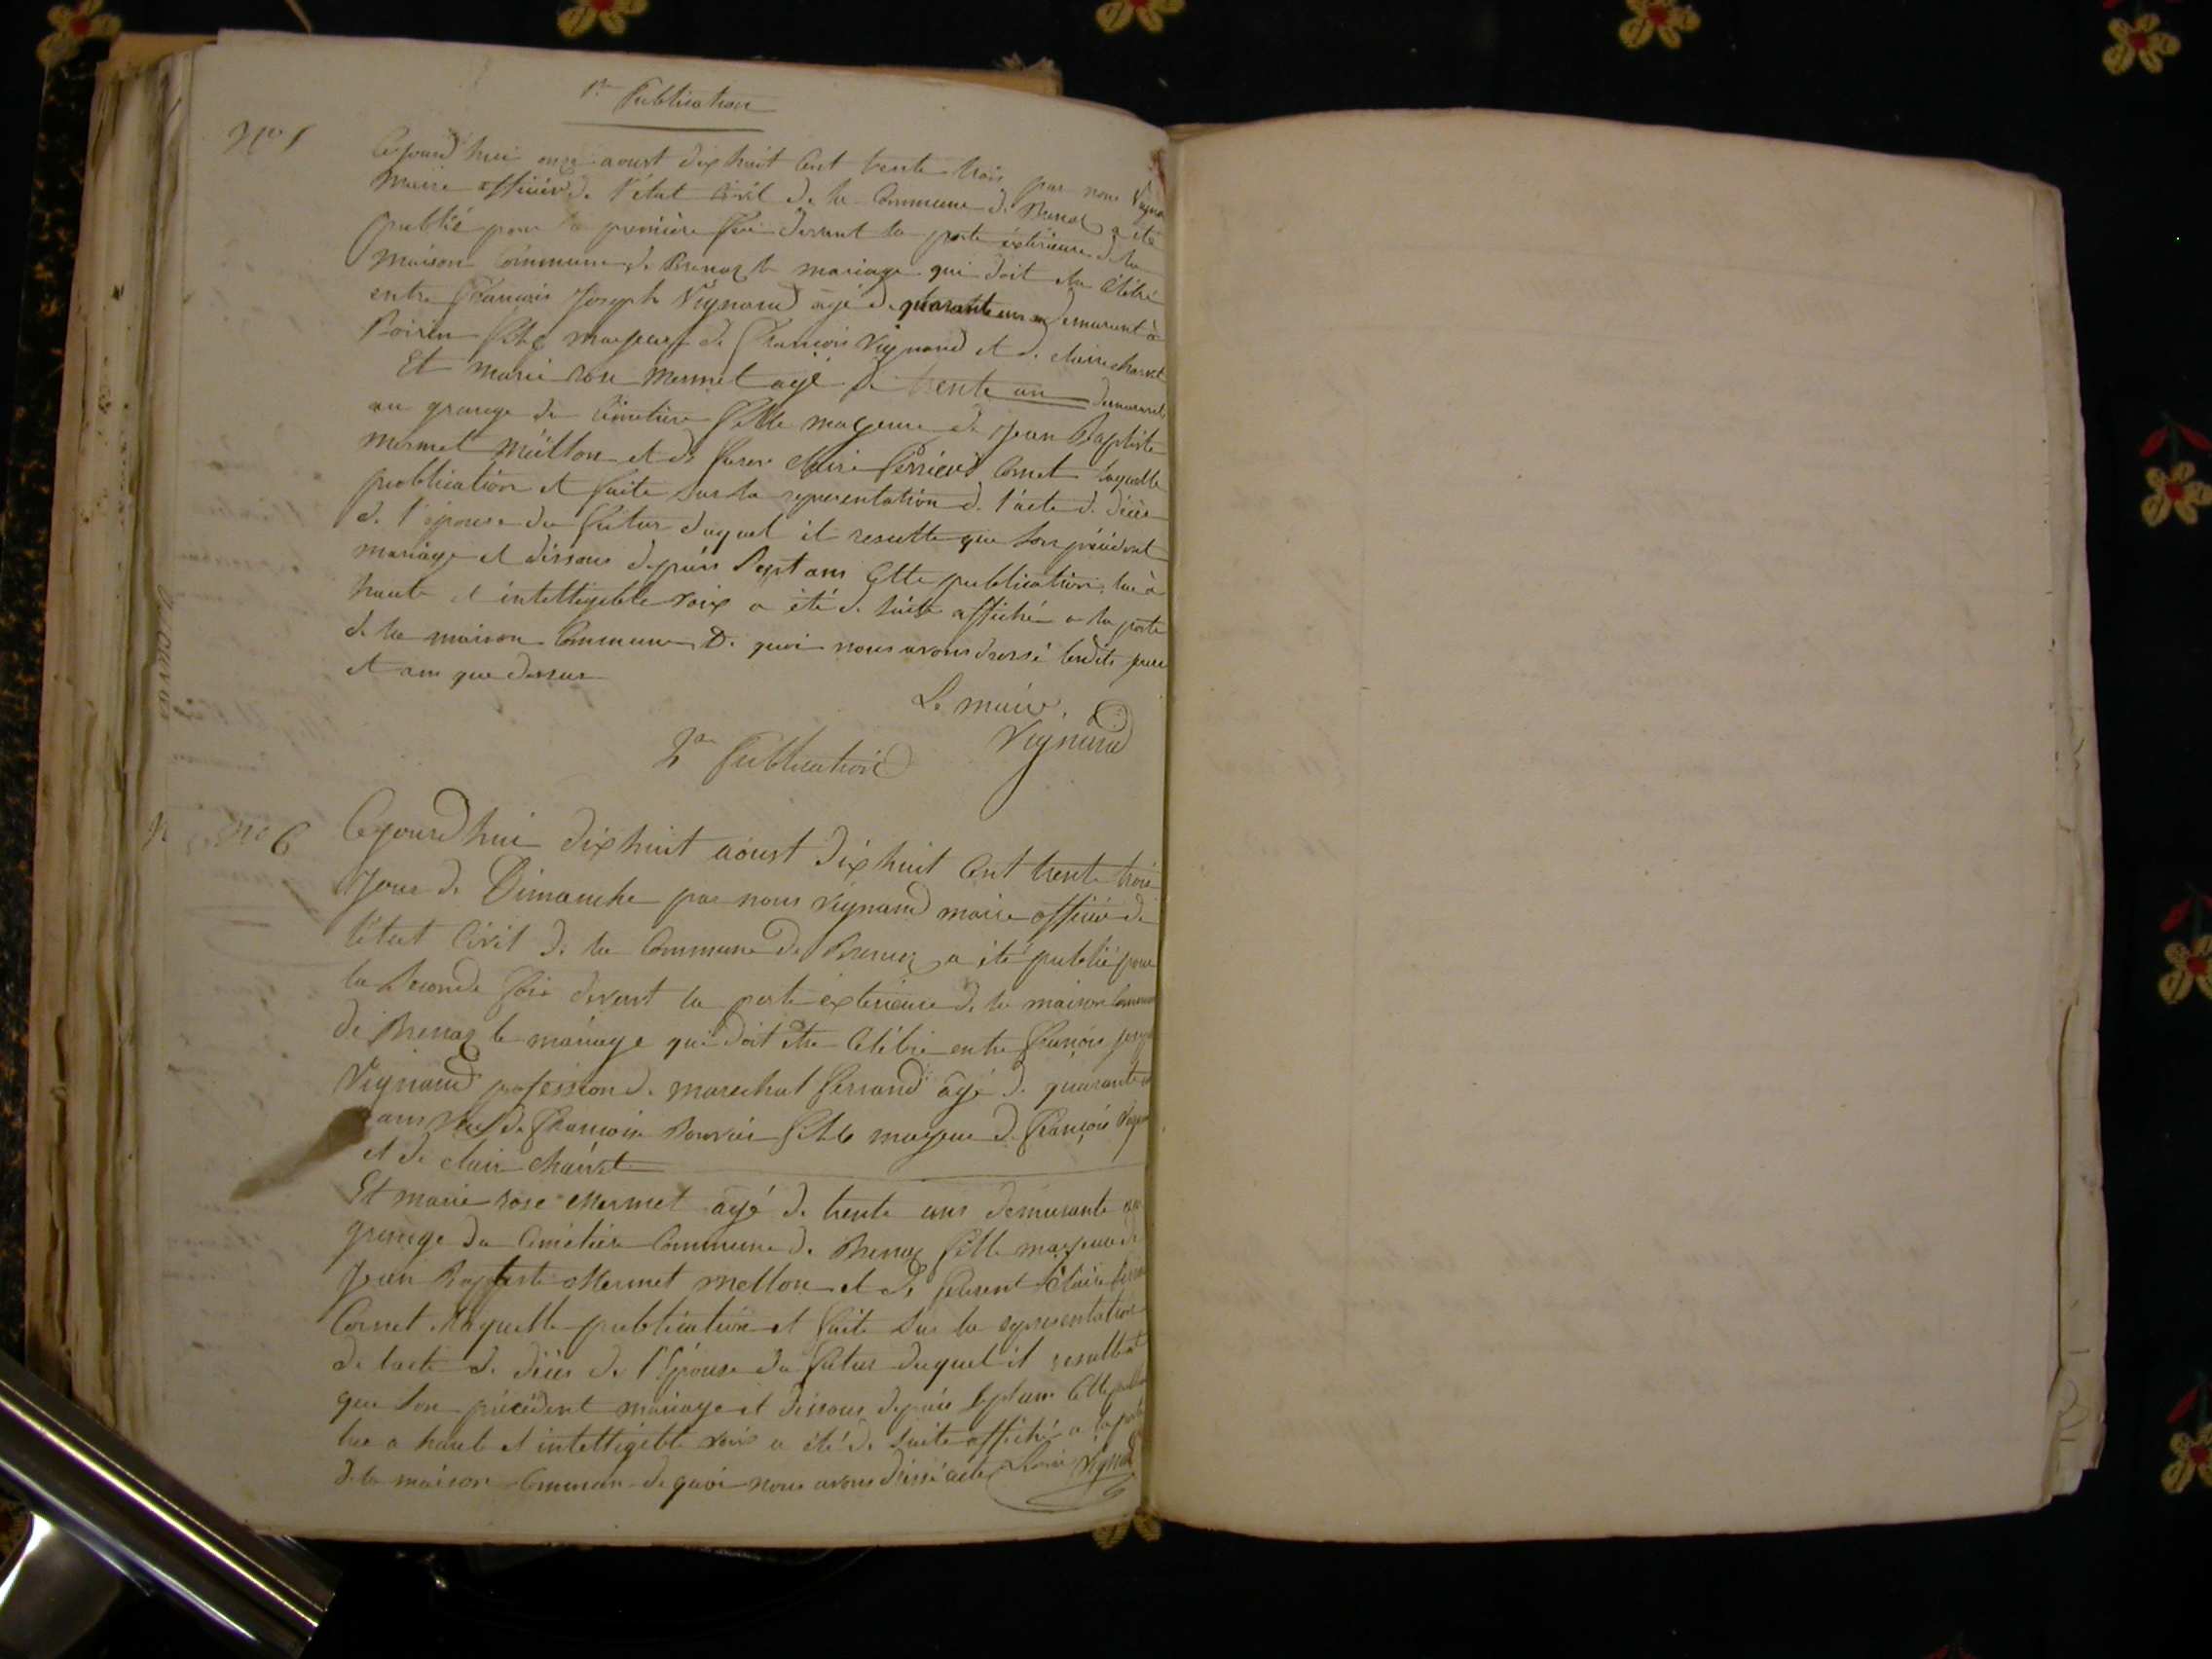 1re Publication
No 5
Cejourd'hui onze aoust dix huit Cent trente trois par nous Vignan
Maire officier de l'état Civil de la Commune de Brenaz a été
publié pour la première fois devant la porte éxtérieure de la
maison Commune de Brenaz le mariage qui doit etre Célébré
entre François Joseph Vignand agé de quarante ans demeurant à
fils majeur de François Vignand et de claire charvet
Et marie rose Mermet agé de trente an demeurant
au grange de Cimetière fille mageure de Jean Baptiste
mermet Mollon et de Claire Cornet Laquelle
publication et faite sur la representation de l'acte de décès
de l'épouse du futur duquel il resulte que son précédent
mariage et dissous depuis Sept ans Cette publication lue à
haute et intelligible voix a été de suite affiché a la porte
de la maison Commune De quoi nous avons dressé lesdits jour
et an que dessus
Le maire,
Vignand
2me Publication
No 6
Cejourd'hui dix huit aoust dix huit Cent trente trois
Jour de Dimanche par nous Vignand maire officier de
l'état Civil de la Commune de Brenaz a été publié pour
la Seconde fois devant la porte éxterieure de la maison Commune
de Brenaz le mariage qui doit etre Célébré entre François Joseph
Vignand profession de marechal ferrand agé de quarante
ans de François fils mageur de François Vignan
et de claire charvet
Et marie rose Mermet agé de trente ans demeurante au
grange du Cimétière Commune de Brenaz fille majeure de
Jean Baptiste Mermet Mollon et de Claire
Cornet Laquelle publication et faite sur la representation
de l'acte de décès de l'Epouse du futur duquel il resulte
que son précédent mariage et dissous depuis Sept ans Cette
lue a haute et intelligible voix a été de suite affiché a la porte
de la maison Commune de quoi nous avons dressé acte Le maire Vignand